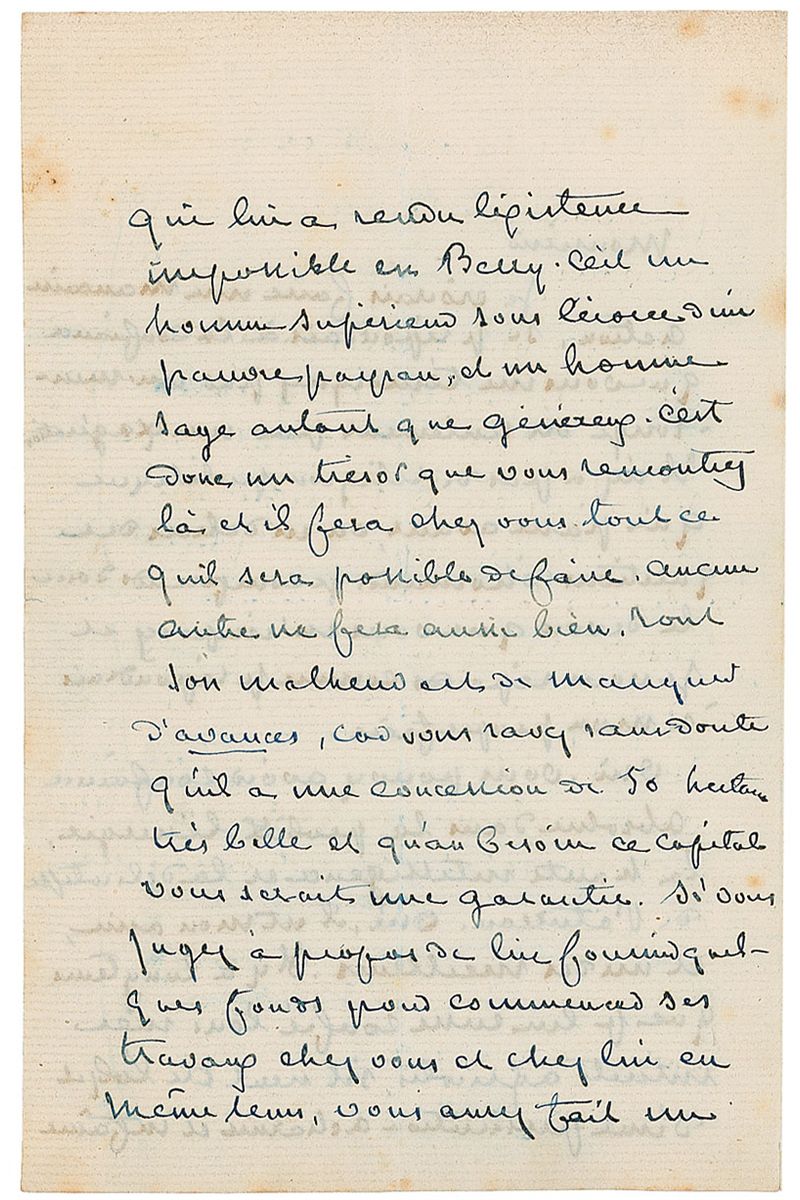 qui lui a rendu l'existence
impossible en Berry. C'est un
homme supérieur sous l'écorce d'un
pauvre paysan, et un homme
sage autant que généreux. C'est
donc un trésor que vous rencontrez
là, et il fera chez vous tout ce
qu'il sera possible de faire. aucun
autre ne fera aussi bien. Tout
son malheur est de manquer
d'avances, car vous savez sans doute
qu'il a une concession de 50 hectares
très belle et qu'au besoin ce capital
vous serait une garantie. Si vous
jugez a propos de lui fournir quel-
ques fonds pour commencer ses
travaux chez vous et chez lui en
même tems, vous aurez fait un